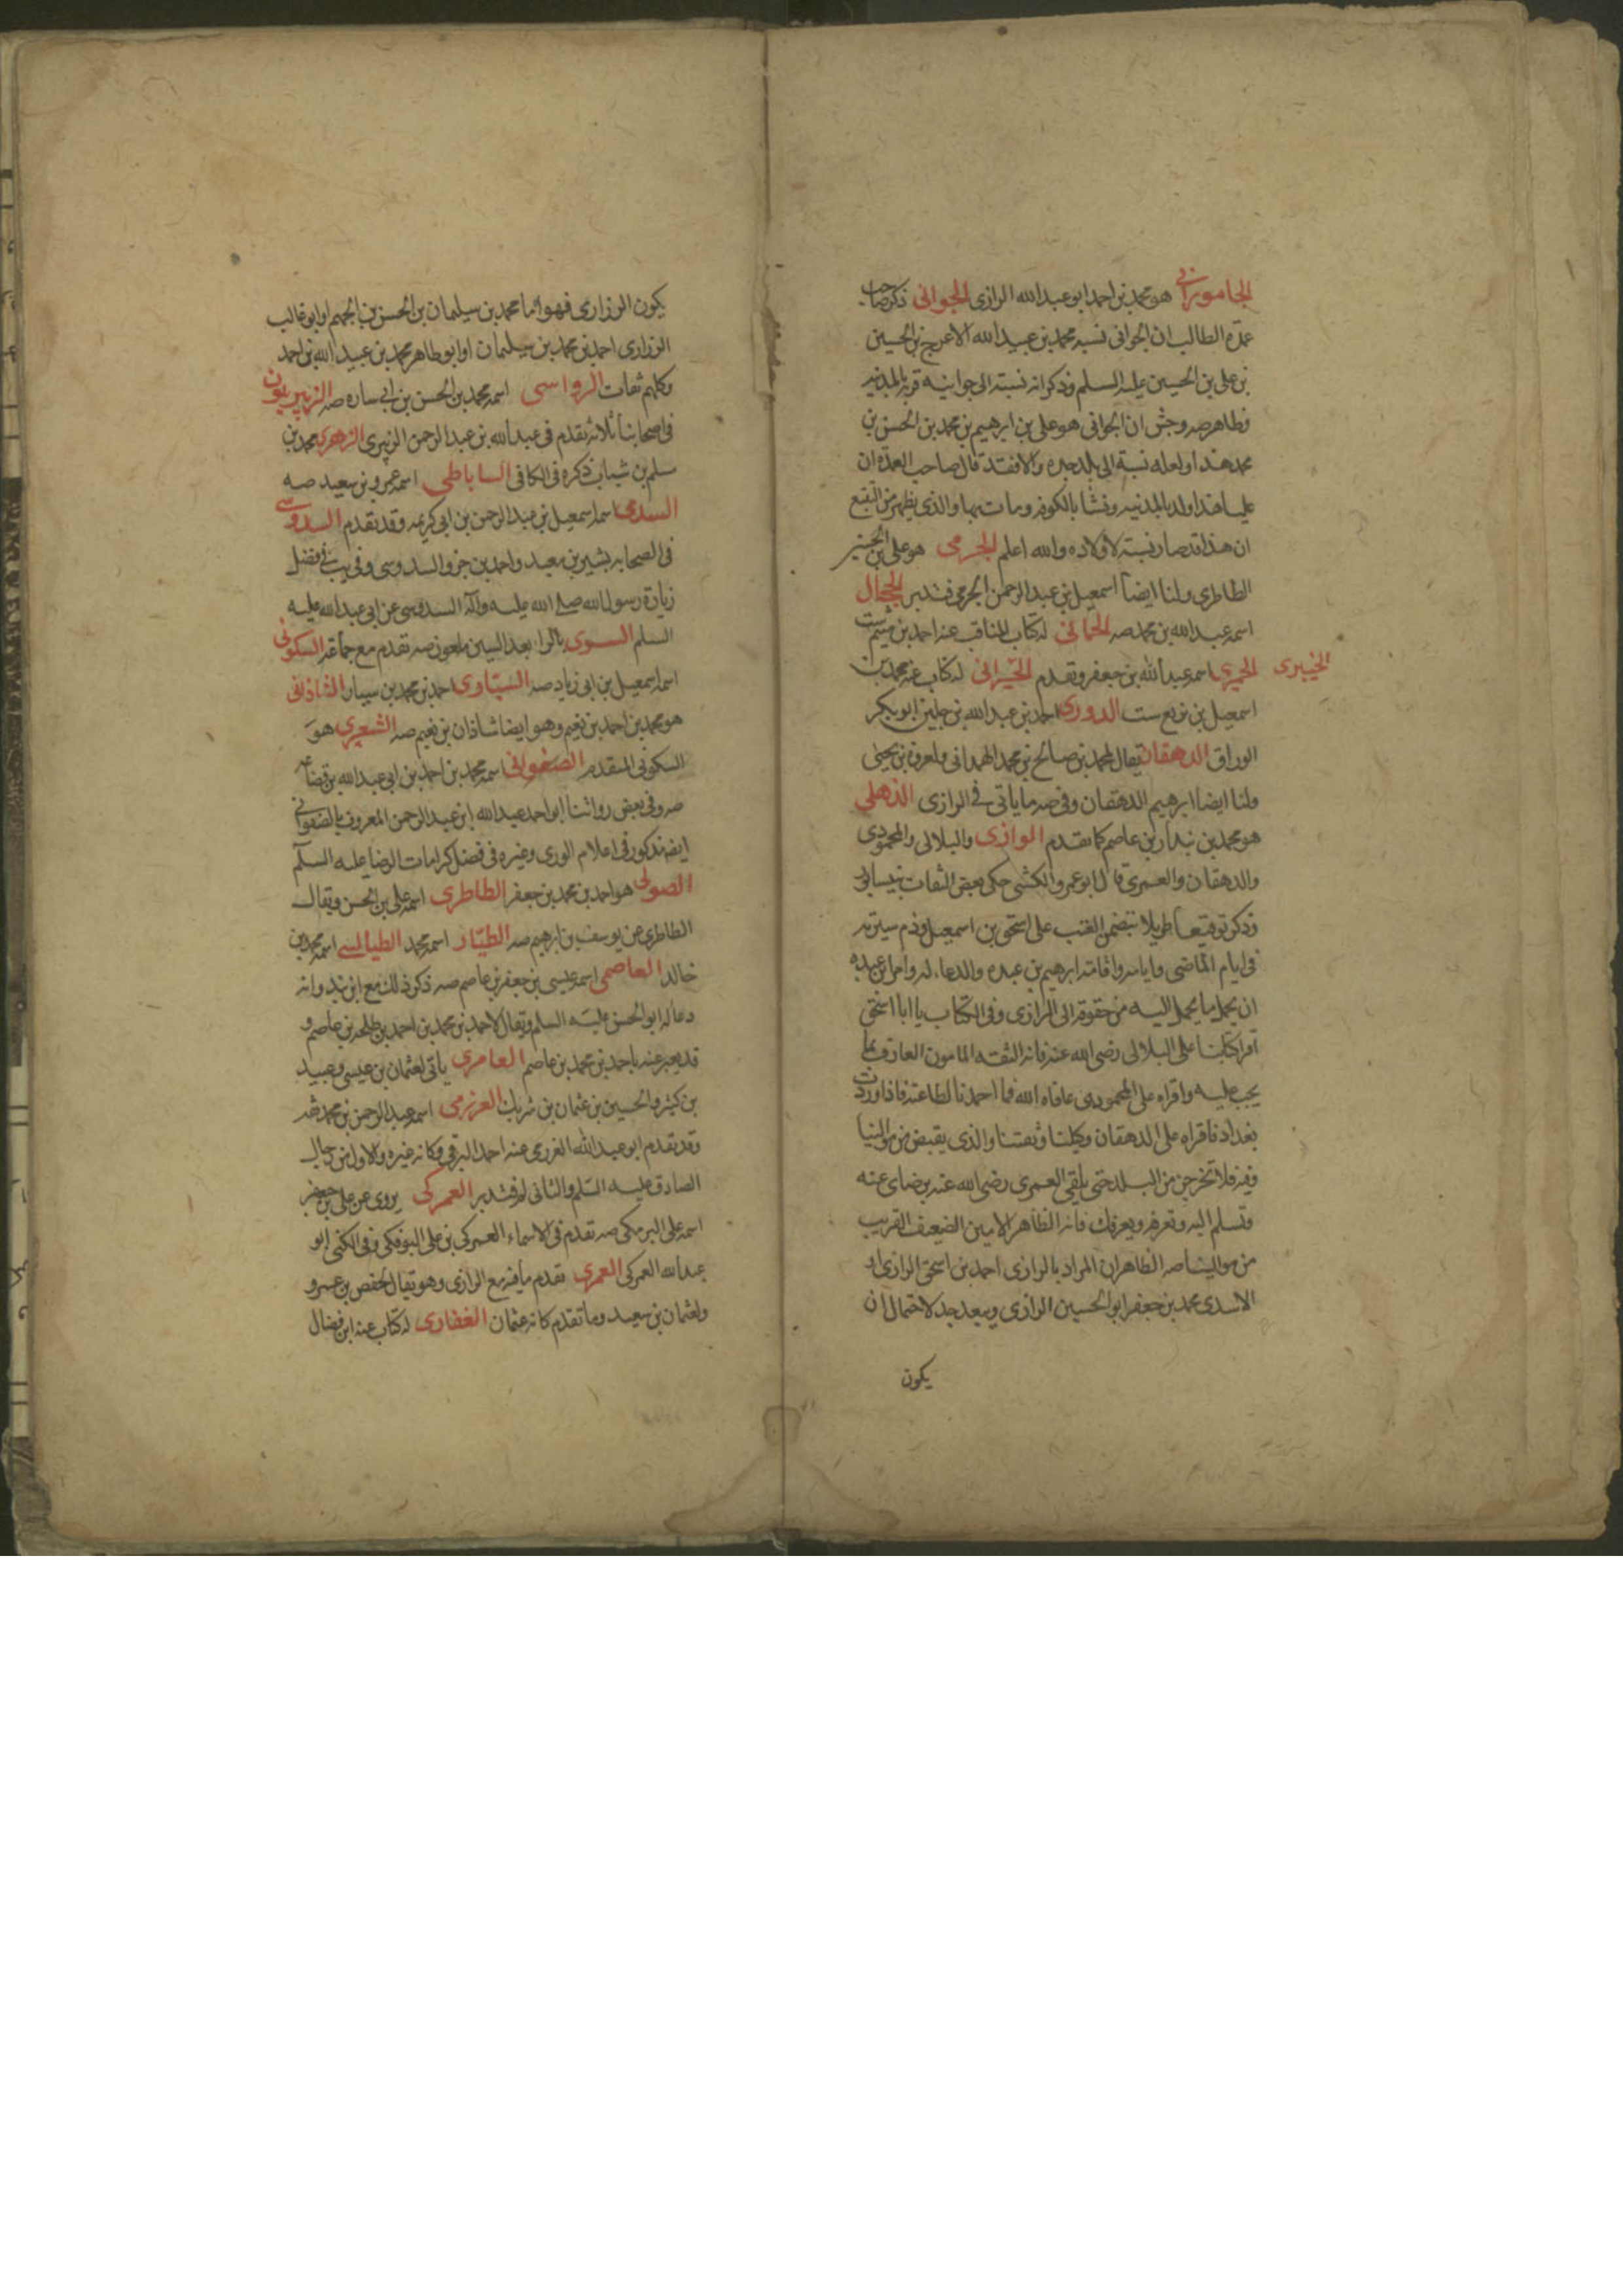 الجاموراني هو محمد بن احمد ابو عبد الله الرازي الجواني ذكر صاحب
عمدة الطالب ان الجواني نسبه محمد بن عبيد الله الاعرج بن الحسين
بن علي بن الحسين عليه السلم وذكر انه نسبته الى جوانية قرية بالمدينة
وظاهر صه وجش ان الجواني هو علي بن ابرهيم بن محمد بن الحسن بن
محمد هذا ولعله نسبة الى جده والا فقد قال صاحب العمدة ان
عليا هذا ولد بالمدينة ونشا بالكوفة ومات بها والذي يظهر من التتبع
ان هذا قد صار نسبة لاولاده والله اعلم الجرمي هو علي بن الحسن
الطاطري ولنا ايضا اسمعيل بن عبد الرحمن الجرمي فتدبر الحجال
اسمه عبد الله بن محمد صه الحماني له كتاب المناقب عنه احمد بن ميثم ست
الخيبري الحميري اسمه عبد الله بن جعفر وتقدم الخيراني له كتاب عنه محمد بن
اسمعيل بن بزيع ست الدوري احمد بن عبد الله بن جلين ابو بكر
الوراق الدهقان يقال لمحمد بن صالح بن محمد الهمداني ولعروة بن يحيى
ولنا ايضا ابرهيم الدهقان وفي صه ما ياتي في الرازي الذهلي
هو محمد بن بندار بن عاصم كما تقدم الرازي والبلالي والمحمودي
والدهقان والعمري قال ابو عمرو الكشي حكى بعض الثقات بنيسابور
وذكر توقيعا طويلا يتضمن العتب على اسحق بن اسمعيل وذم سيرته
في ايام الماضي وايامه واقامة ابرهيم بن عبده والدعاء له وامر ابن عبده
ان يحمل ما يحمل اليه من حقوقه الى الرازي وفي الكتاب يا ابا اسحق
اقرا كتابنا على البلالي رضي الله عنه فانه الثقة المامون العارف بما
يجب عليه واقراه على المحمودي عافاه الله فما احمدنا لطاعته فاذا وردت
بغداد فاقراه على الدهقان وكيلنا وثقتنا والذي يقبض من موالينا
وفيه فلا تخرجن من البلد حتى تلقى العمري رضي الله عنه برضاي عنه
وتسلم اليه وتعرفه ويعرفك فانه الطاهر الامين العفيف القريب
من موالينا صه الظاهر ان المراد بالرازي احمد بن اسحق الرازي او
الاسدي محمد بن جعفر ابو الحسين الرازي ويبعد جدا احتمال ان
يكون
يكون الزراري فهو اما محمد بن سليمان بن الحسن بن الجهم او ابو غالب
الزراري احمد بن محمد بن سليمان او ابو طاهر محمد بن عبيد الله بن احمد
وكلهم ثقات الرواسي اسمه محمد بن الحسن بن ابي ساره صه الزبيريون
في اصحابنا ثلاثة تقدم في عبد الله بن عبد الرحمن الزبيري الزهري محمد بن
مسلم بن شهاب ذكره في الكافي الساباطي اسمه عمرو بن سعيد صه
السدي اسمه اسمعيل بن عبد الرحمن بن ابي كريمه وقد تقدم السدوسي
في الصحابه بشير بن معبد واحمد بن جزء السدوسي وفي يب في فضل
زيارة رسول الله صلى الله عليه وآله السدوسي عن ابي عبد الله عليه
السلم السوري بالراء بعد السين ملعون صه تقدم مع جماعة السكوني
اسمه اسمعيل بن ابي زياد صه السياري احمد بن محمد بن سيار الشاذاني
هو محمد بن احمد بن نعيم وهو ايضا شاذان بن نعيم صه الشعيري هو
السكوني المتقدم الصفواني اسمه محمد بن احمد بن ابي عبد الله بن قضاعه
صه وفي بعض رواتنا ابو احمد عبد الله بن عبد الرحمن المعروف بالصفواني
ايضا مذكور في اعلام الورى وغيره في فضل كرامات الرضا عليه السلم
الصولي هو احمد بن محمد بن جعفر الطاطري اسمه علي بن الحسن ويقال
الطاطري عن يوسف بن ابرهيم صه الطيار اسمه محمد الطيالسي اسمه محمد بن
خالد العاصمي اسمه عيسى بن جعفر بن عاصم صه ذكر ذلك مع ابن بند وانه
دعا له ابو الحسن عليه السلم ويقال لاحمد بن محمد بن احمد بن طلحه بن عاصم و
قد يعبر عنه باحمد بن محمد بن عاصم العامري ياتي لعثمان بن عيسى وعبيد
بن كثير والحسين بن عثمان بن شريك العرزمي اسمه عبد الرحمن بن محمد
وقد تقدم ابو عبد الله العرزمي عنه احمد البرقي وكانه غيره والاول من رجال
الصادق عليه السلم والثاني فتدبر العمركي يروي عن علي بن جعفر
اسمه علي البرمكي صه تقدم في الاسماء العمركي بن علي البوفكي وفي الكنى ابو
عبد الله العمركي العمري تقدم ما فيه مع الرازي وهو يقال لحفص بن عمرو
ولعثمان بن سعيد وما تقدم كانه عثمان الغفاري له كتاب عنه ابن فضال